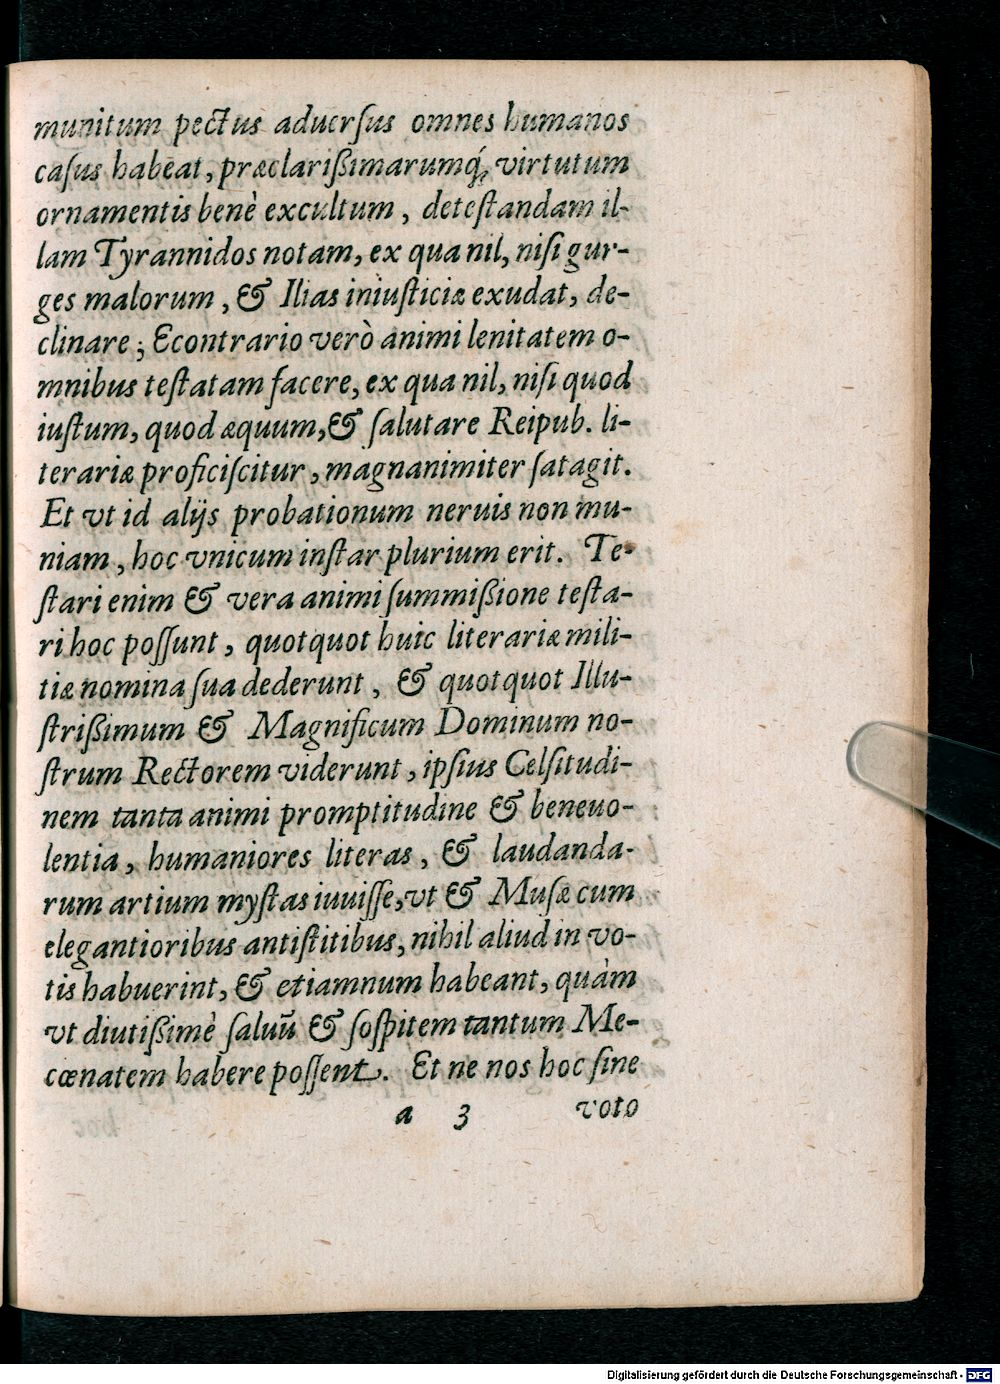 munitum pectus aduerſus omnes humanos
caſus habeat, præclarißimarumq́; virtutum
ornamentis benè excultum, deteſtandam il-
lam Tyrannidos notam, ex qua nil, niſi gur-
ges malorum, & Ilias iniuſticiæ exudat, de-
clinare; Econtrario verò animi lenitatem o-
mnibus teſtatam facere, ex qua nil, niſi quod
iuſtum, quod æquum, & ſalutare Reipub. li-
terariæ proficiſcitur, magnanimiter ſatagit.
Et vt id alijs probationum neruis non mu-
niam, hoc vnicum inſtar plurium erit. Te-
ſtari enim & vera animi ſummißione teſta-
ri hoc poſſunt, quotquot huic literariæ mili-
tiæ nomina ſua dederunt, & quotquot Illu-
ſtrißimum & Magnificum Dominum no-
ſtrum Rectorem viderunt, ipſius Celſitudi-
nem tanta animi promptitudine & beneuo-
lentia, humaniores literas, & laudanda-
rum artium myſtas iuuiſſe, vt & Muſæ cum
elegantioribus antiſtitibus, nihil aliud in vo-
tis habuerint, & etiamnum habeant, quàm
vt diutißimè ſaluū & ſoſpitem tantum Me-
cœnatem habere poſſent. Et ne nos hoc ſine
a 3 voto
Digitalisierung gefördert durch die Deutsche Forschungsgemeinschaft - DFG